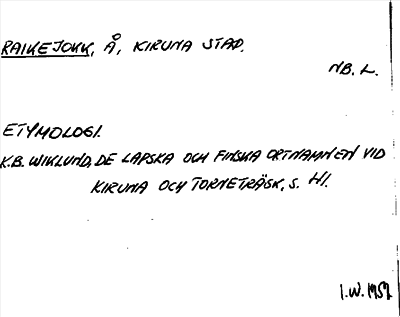 RAIKEJOKK, Å, KIRUNA STAD.
NB. L.
ETYMOLOGI.
K.B. WIKLUND, DE LAPSKA OCH FINSKA ORTNAMNEN VID
KIRUNA OCH TORNETRÄSK, S. 41.
I.W. 1959.